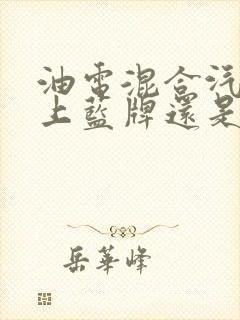 油電混合汽
上藍牌還是
岳華峰